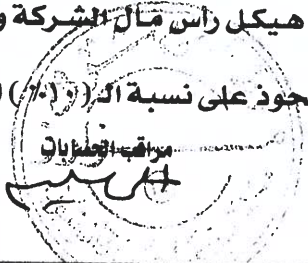 هيكل رأس مال الشركة و
حوذ على نسبة الـ (١٠٪)
مراقب الحسابات